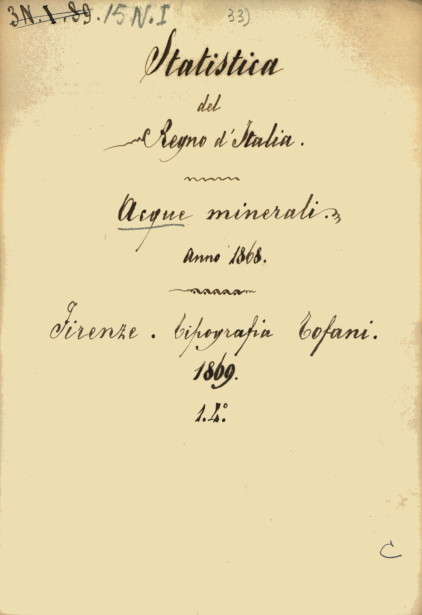 3N.I.39. 15 N.I 33)
Statistica
del
Regno d'Italia.
Acque minerali.
Anno 1868.
Firenze. Tipografia Tofani.
1869.
1.4°.
C